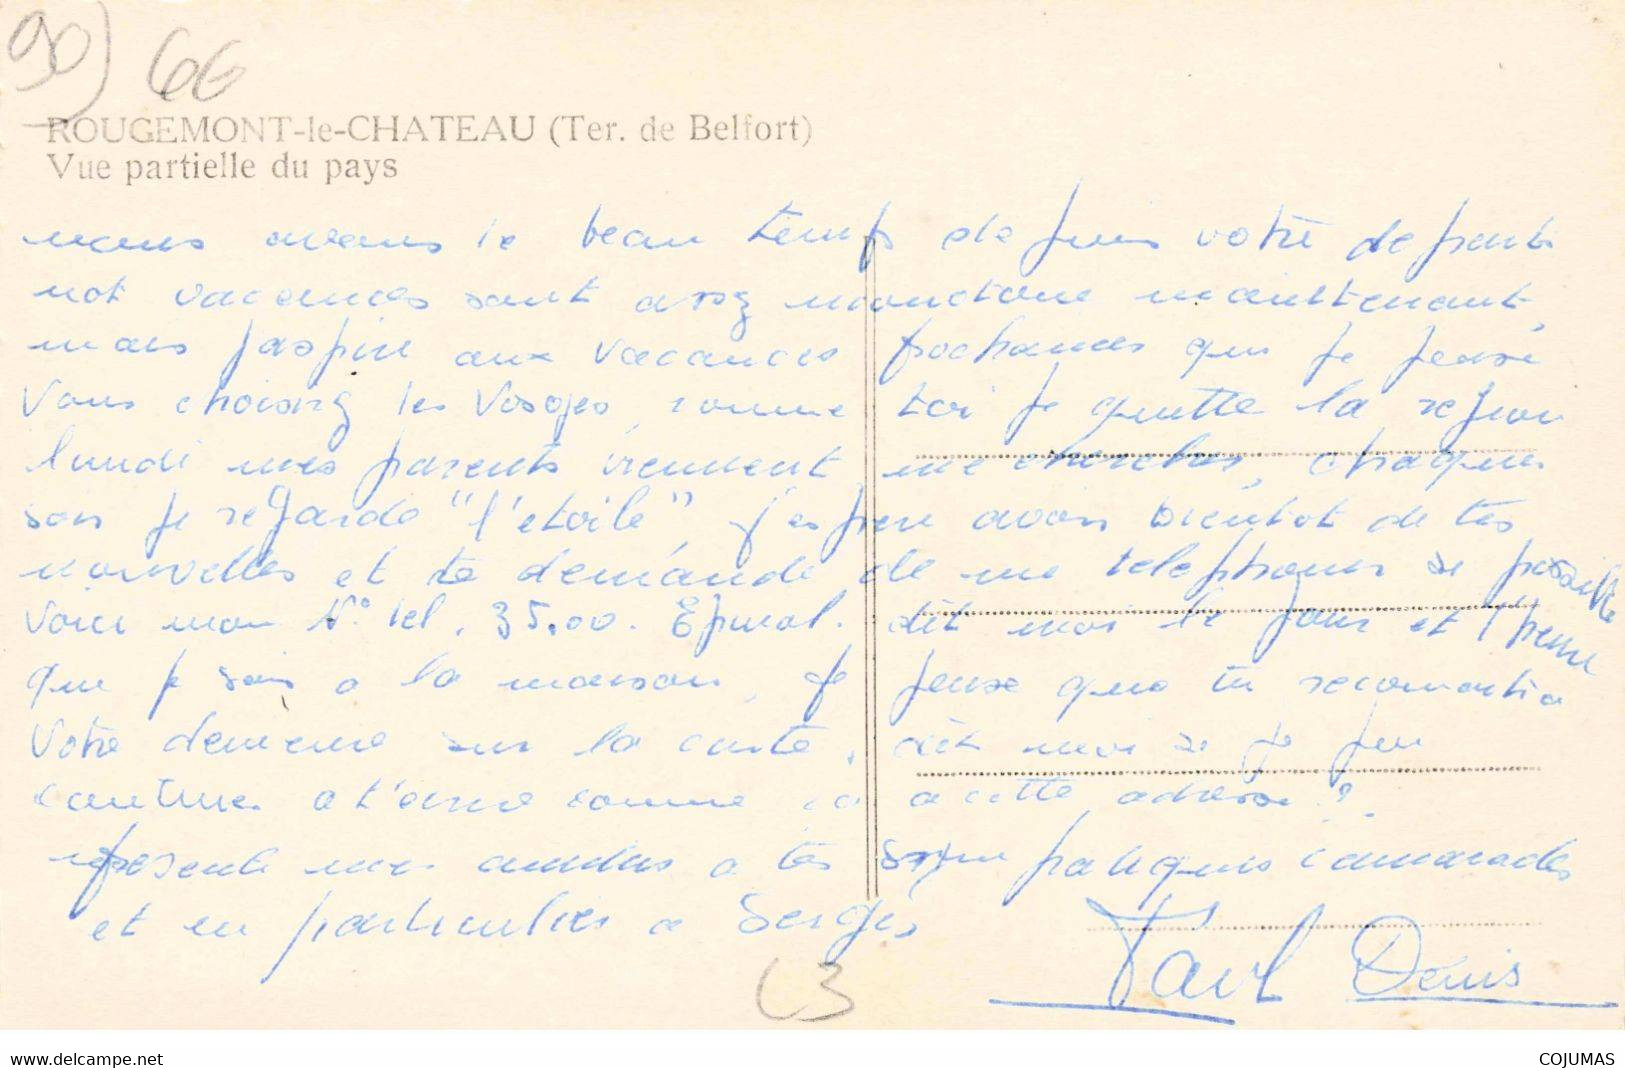 90) 66
ROUGEMONT-le-CHATEAU (Ter. de Belfort)
Vue partielle du pays
nous avons le beau temps depuis votre depart
not vacances sont assez monotone maintenant,
mais j'aspire aux vacances prochaines que je pense
Vous choisirez les Vosges, comme toi je quitte la region
lundi mes parents viennent me chercher, chaque
soir je regarde "l'étoile", j'espere avoir bientot de tes
nouvelles et te demande de me telephoner se possible
Voici mon N° tel. 35.00. Epinal. dit moi le jour et l'heure
que je sois a la maison, je pense que tu reconnaitra
Votre demeure sur la carte, dit moi si je peu
continuer a t'ecrire comme ca a cette adresse?.
represente mes amities a tes sympatiques camarades
et en particulier a Serge,
Paul Denis
C3
www.delcampe.net
COJUMAS